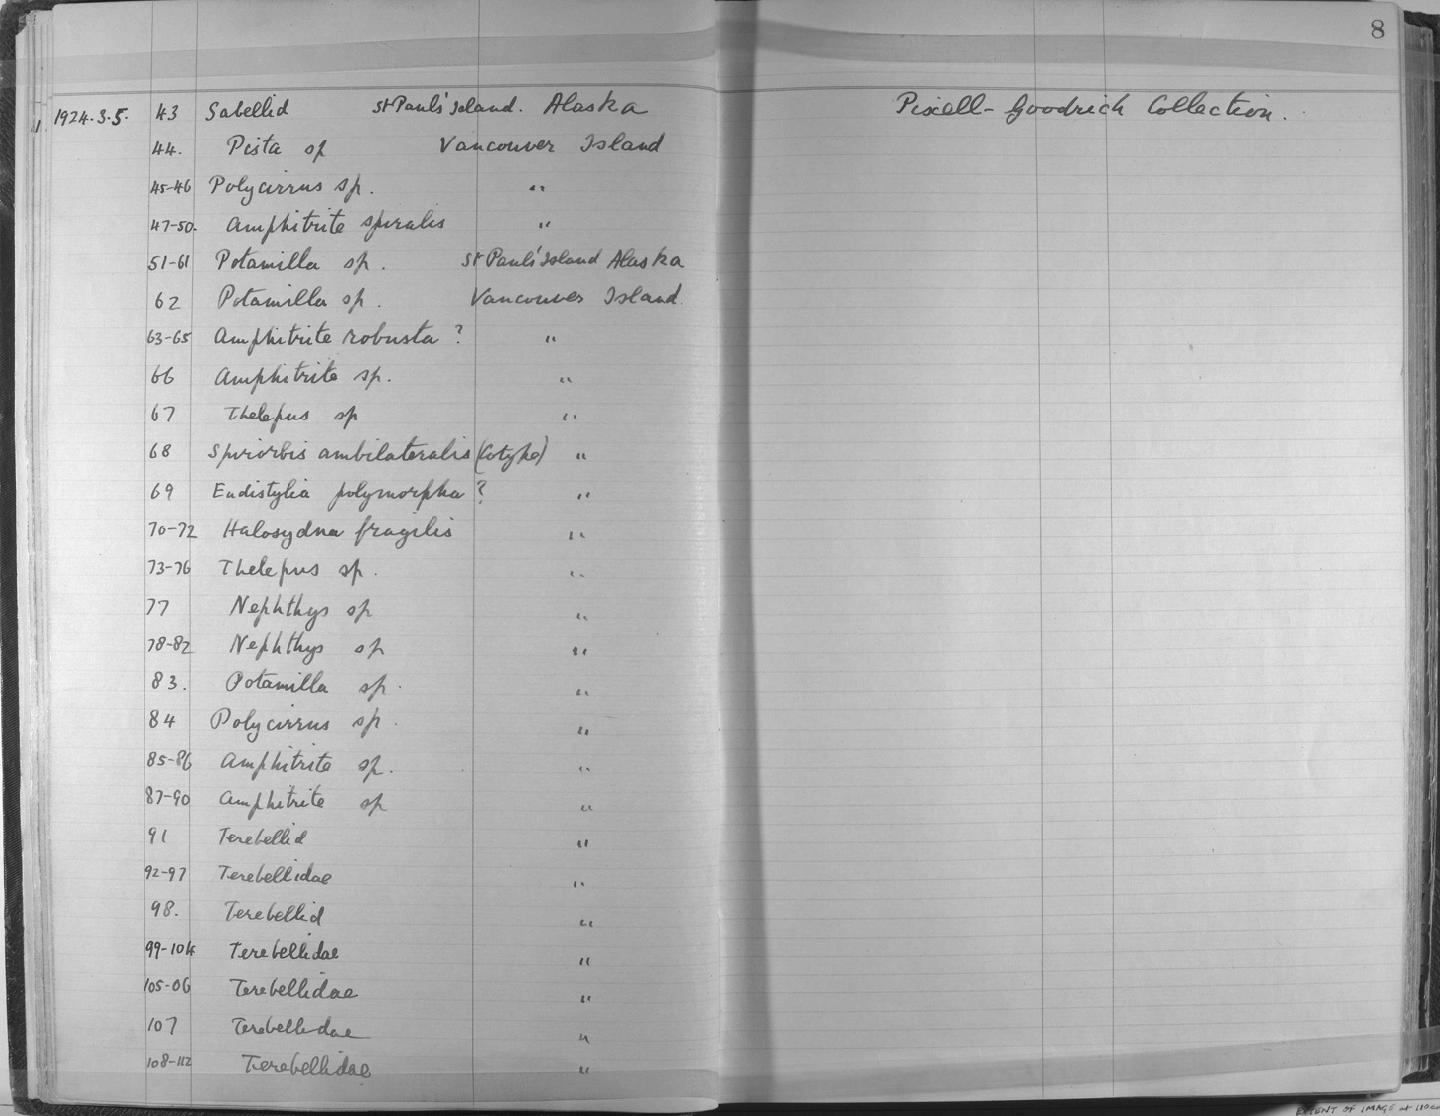 8
1924.3.5. 43 Sabellid St Paul's Island. Alaska Pixell-Goodrich Collection.
44. Pista sp Vancouver Island
45-46 Polycirrus sp. "
47-50. Amphitrite spiralis "
51-61 Potamilla sp. St Paul's Island Alaska
62 Potamilla sp. Vancouver Island
63-65 Amphitrite robusta ? "
66 Amphitrite sp. "
67 Thelepus sp "
68 Spirorbis ambilateralis (Cotype) "
69 Eudistylia polymorpha ? "
70-72 Halosydna fragilis "
73-76 Thelepus sp. "
77 Nephthys sp "
78-82 Nephthys sp "
83. Potamilla sp. "
84 Polycirrus sp. "
85-86 Amphitrite sp. "
87-90 Amphitrite sp "
91 Terebellid "
92-97 Terebellidae "
98. Terebellid "
99-104 Terebellidae "
105-06 Terebellidae "
107 Terebellidae "
108-112 Terebellidae "
OF IMAGE